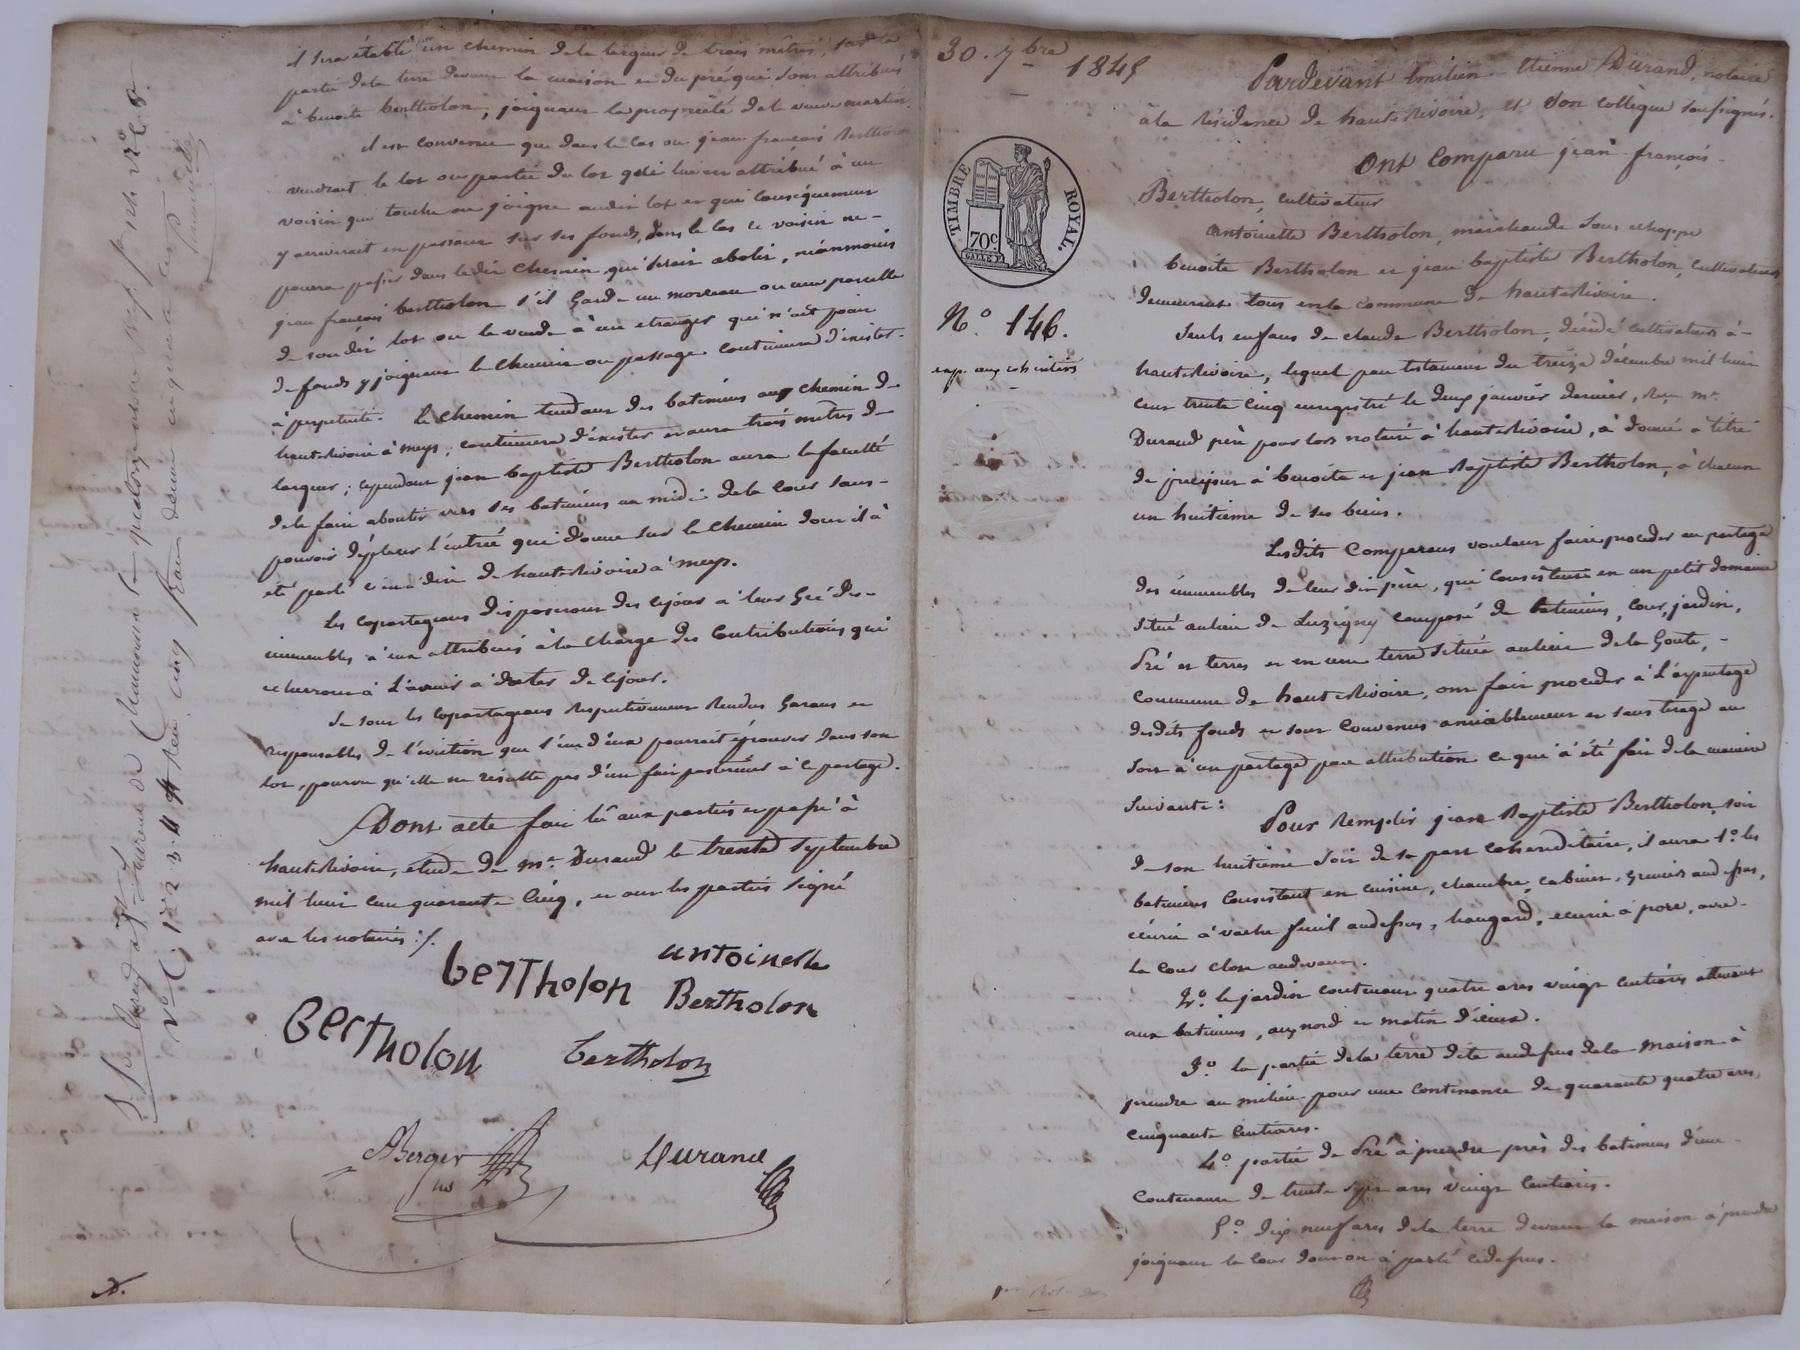 il sera établi un chemin de la largeur de trois mètres, sur la
partie de la terre devant la maison et du pré qui sont attribués
à benoite bertholon, joignant la propriété de la veuve martin.
il est convenu que dans le cas ou jean françois Bertholon
vendrait le lot ou partie du lot qui lui est attribué à un
voisin qui touche ou joigne audit lot et qui conséquemment
y arriverait en passant sur ses fonds, dans le cas ce voisin ne
pourra passer dans ledit chemin qui serait aboli, néanmoins
jean françois bertholon s'il garde un morceau ou une parcelle
de son dit lot ou le vende à un etranger qui n'ait point
de fonds y joignant le chemin ou passage continuera d'exister
à perpetuité. le chemin tendant des batiments aux chemin de
hauterivoire à meys, continuera d'exister et aura trois mètres de
largeur; cependant jean baptiste Bertholon aura la faculté
de le faire aboutir vers ses batiments au midi de la cour sans
pouvoir déplacer l'entrée qui donne sur le chemin dont il à
été parlé c'est à dire de hauterivoire à meys.
Les copartageans disposeront dès cejour à leur gré des
immeubles à eux attribués à la charge des contributions qui
echerront à l'avenir à dater de cejour.
Se sont les copartageans respectivement rendus garans et
responsables de l'éviction que l'un d'eux pourrait éprouver dans son
lot, pourvu qu'elle ne résulte pas d'un fait postérieur à ce partage.
Dont acte fait lû aux parties et passé à
hauterivoire, étude de me. Durand le trente septembre
mil huit cent quarante cinq, et ont les parties signé
avec les notaires ./.
bertholon antoinette
Bertholon
bertholon
bertholon
ABerger
Durand
30. 7bre 1845
TIMBRE ROYAL.
70c
No. 146.
Pardevant Emilien Etienne Durand, notaire
à la résidence de hauterivoire, et son collègue soussignés.
Ont Comparu jean françois
Bertholon, cultivateur
antoinette Bertholon, marchande sous echoppe
benoite Bertholon et jean baptiste Bertholon, cultivateurs
demeurant tous en la commune de hauterivoire.
Seuls enfans de claude Bertholon, décédé cultivateur à
hauterivoire, lequel par testament du treize décembre mil huit
cent trente cinq enregistré le deux janvier dernier, reçu me.
Durand père pour lors notaire à hauterivoire, à donné à titre
de préciput à benoite et jean Baptiste Bertholon, à chacun
un huitieme de ses biens.
Lesdits Comparans voulant faire proceder au partage
des immeubles de leur dit père, qui consistent en un petit domaine
situé au lieu de Luzigny composé de batiments, cour, jardin,
Pré et terres et en une terre située au lieu de la Goute,
commune de hauterivoire, ont fait proceder à L'arpentage
desdits fonds et sont convenus amiablement et sans tirage au
sort à un partage par attribution ce qui à été fait de la maniere
suivante:
Pour Remplir jean Baptiste Bertholon soit
de son huitieme soit de sa part cohereditaire, il aura 1o. les
batiments consistant en cuisine, chambre, cabinet, greniers audessus,
écurie à vache fenil audessus, hangard, ecurie à porc, avec
la cour close audevant.
2o. le jardin contenant quatre ares vingt centiares attenant
aux batiments, aux nord et matin d'iceux.
3o. la partie de la terre dite audessus de la maison à
prendre au milieu pour une continence de quarante quatre ares
cinquante centiares.
4o. partie de Pré à prendre près des batiments d'une
contenance de trente sept ares vingt centiares.
5o. dix neuf ares de la terre devant la maison à prendre
joignant la cour dont on à parlé cidessus.